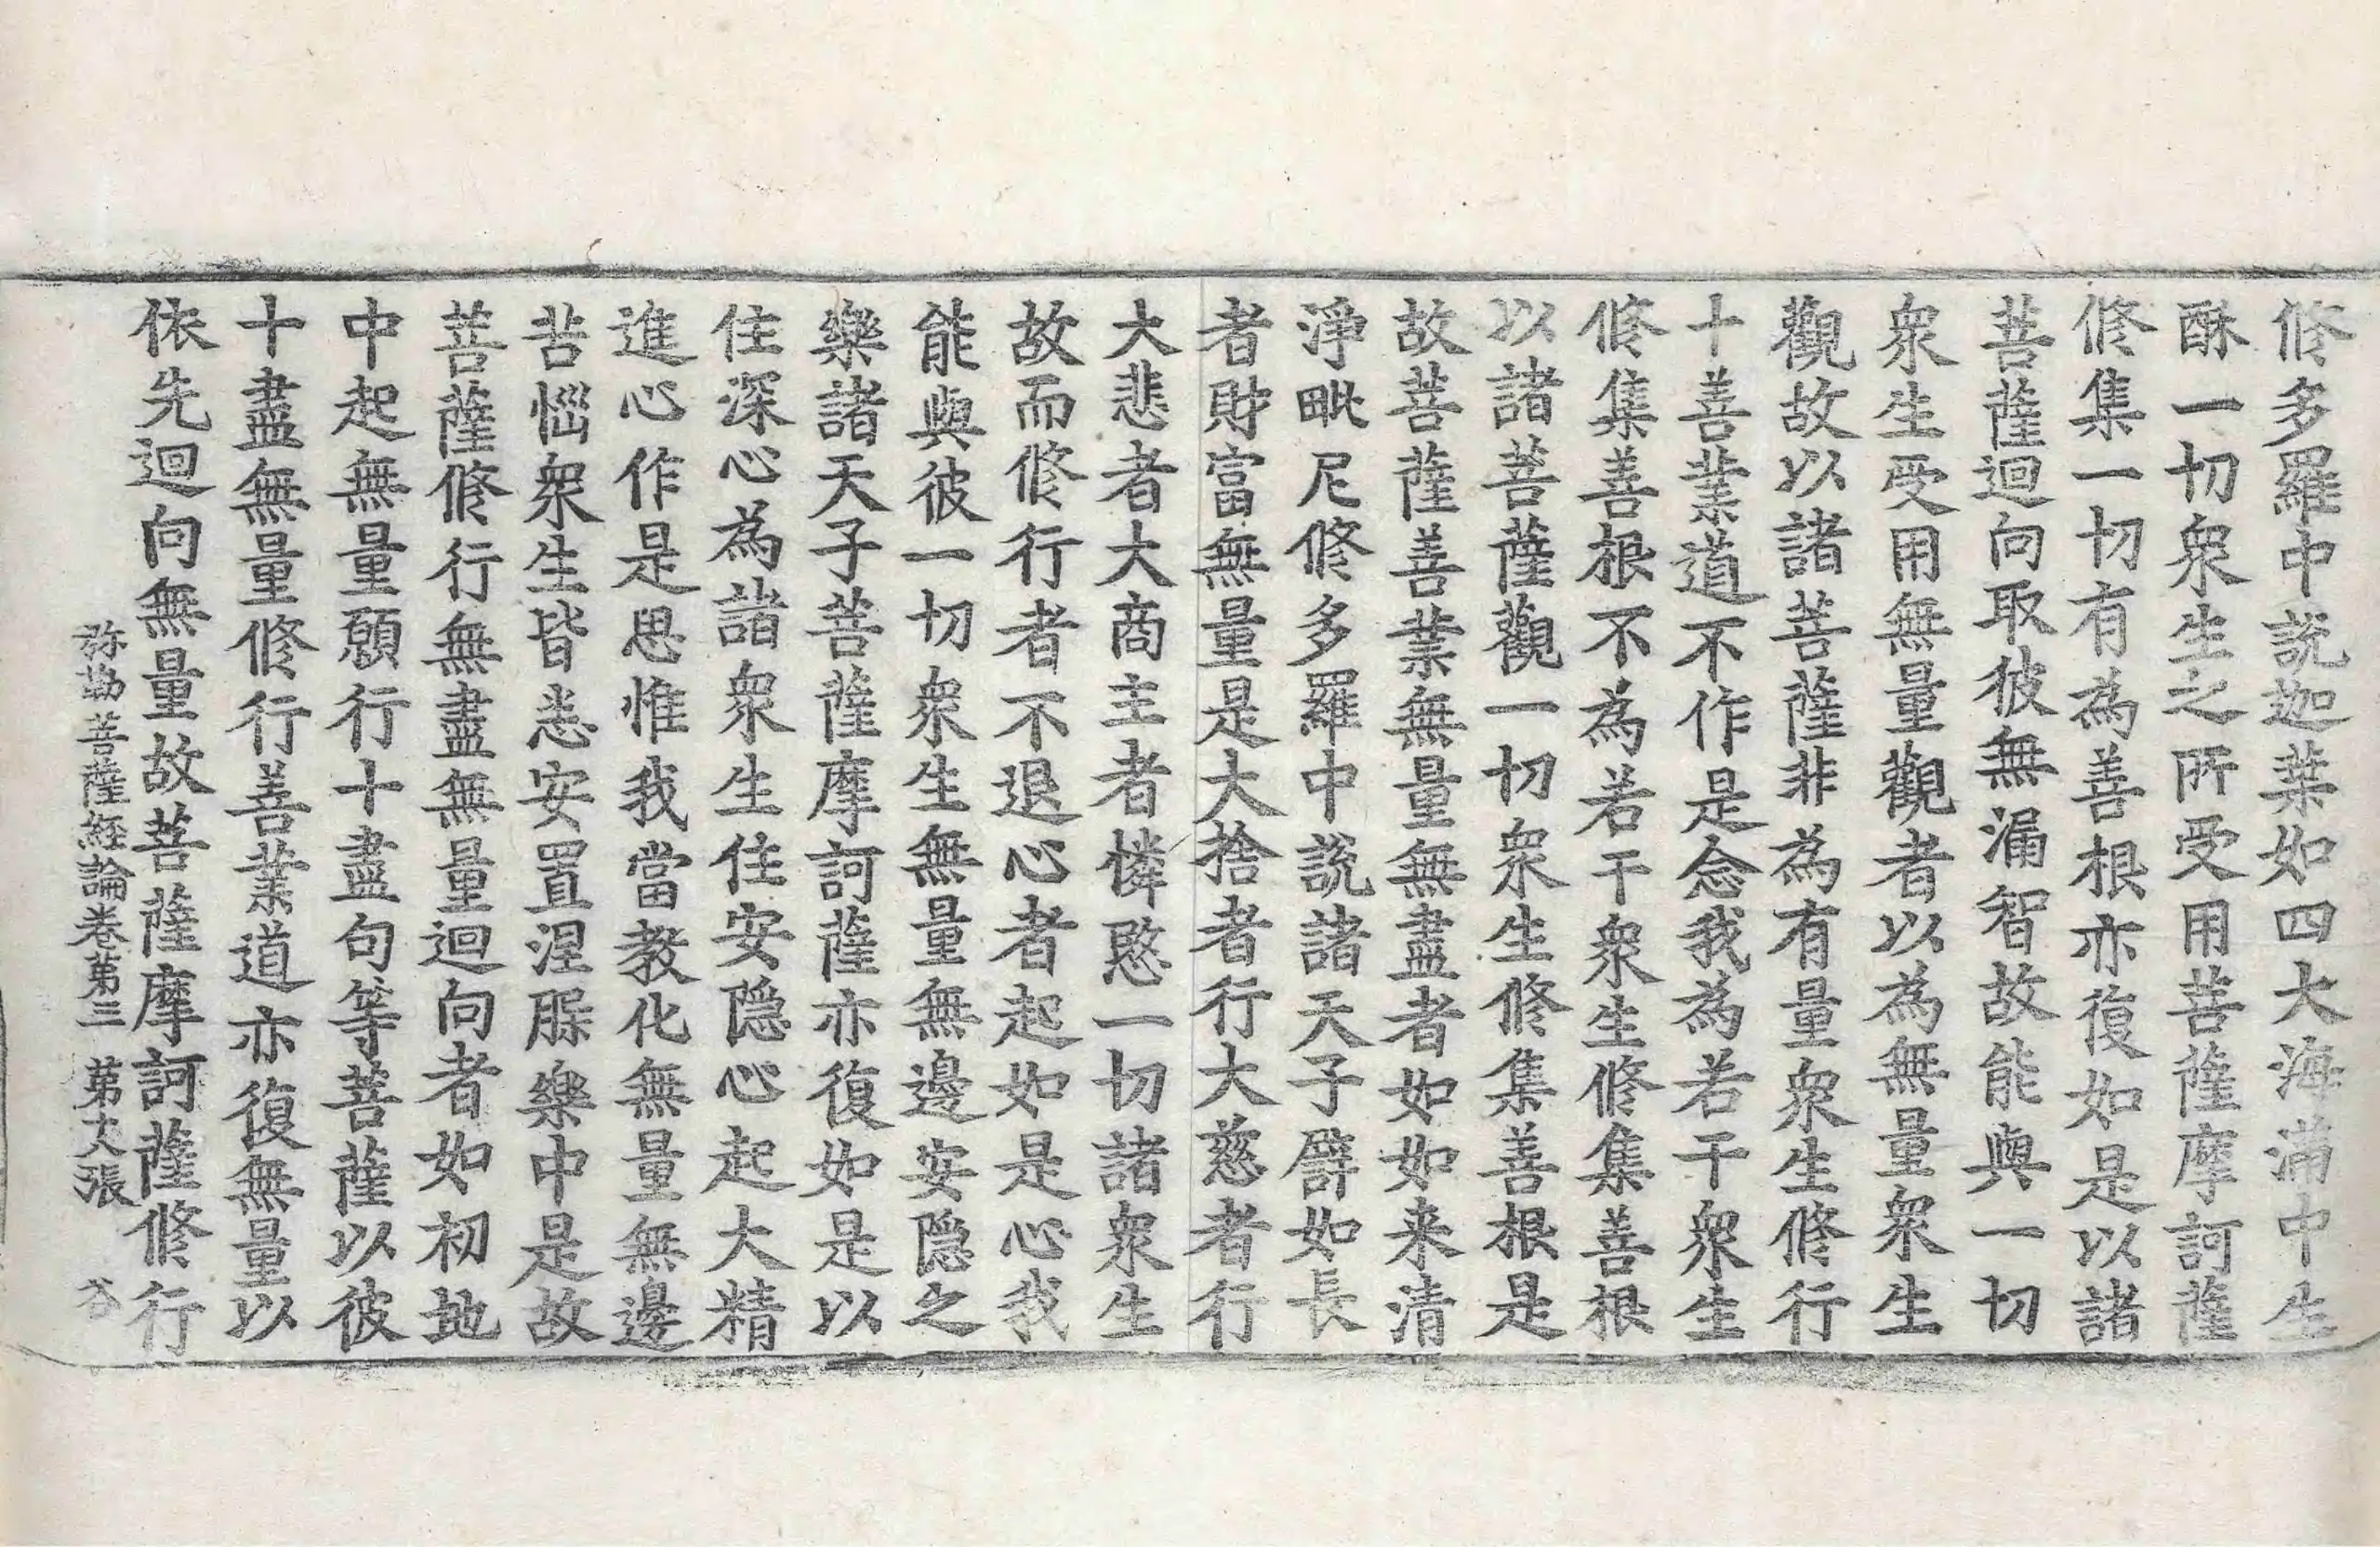 修多羅中說迦葉如四大海滿中生
酥一切衆生之所受用菩薩摩訶薩
修集一切有為善根亦復如是以諸
菩薩迴向取彼無漏智故能與一切
衆生受用無量觀者以為無量衆生
觀故以諸菩薩非為有量衆生修行
十善業道不作是念我為若干衆生
修集善根不為若干衆生修集善根
以諸菩薩觀一切衆生修集善根是
故菩薩善業無量無盡者如如来清
淨毗尼修多羅中說諸天子譬如長
者財富無量是大捨者行大慈者行
大悲者大商主者憐愍一切諸衆生
故而修行者不退心者起如是心我
能與彼一切衆生無量無邊安隱之
樂諸天子菩薩摩訶薩亦復如是以
住深心為諸衆生住安隱心起大精
進心作是思惟我當教化無量無邊
苦惱衆生皆悉安置涅槃樂中是故
菩薩修行無盡無量迴向者如初地
中起無量願行十盡句等菩薩以彼
十盡無量修行善業道亦復無量以
依先迴向無量故菩薩摩訶薩修行
弥勒菩薩經論卷第三 第六張 谷